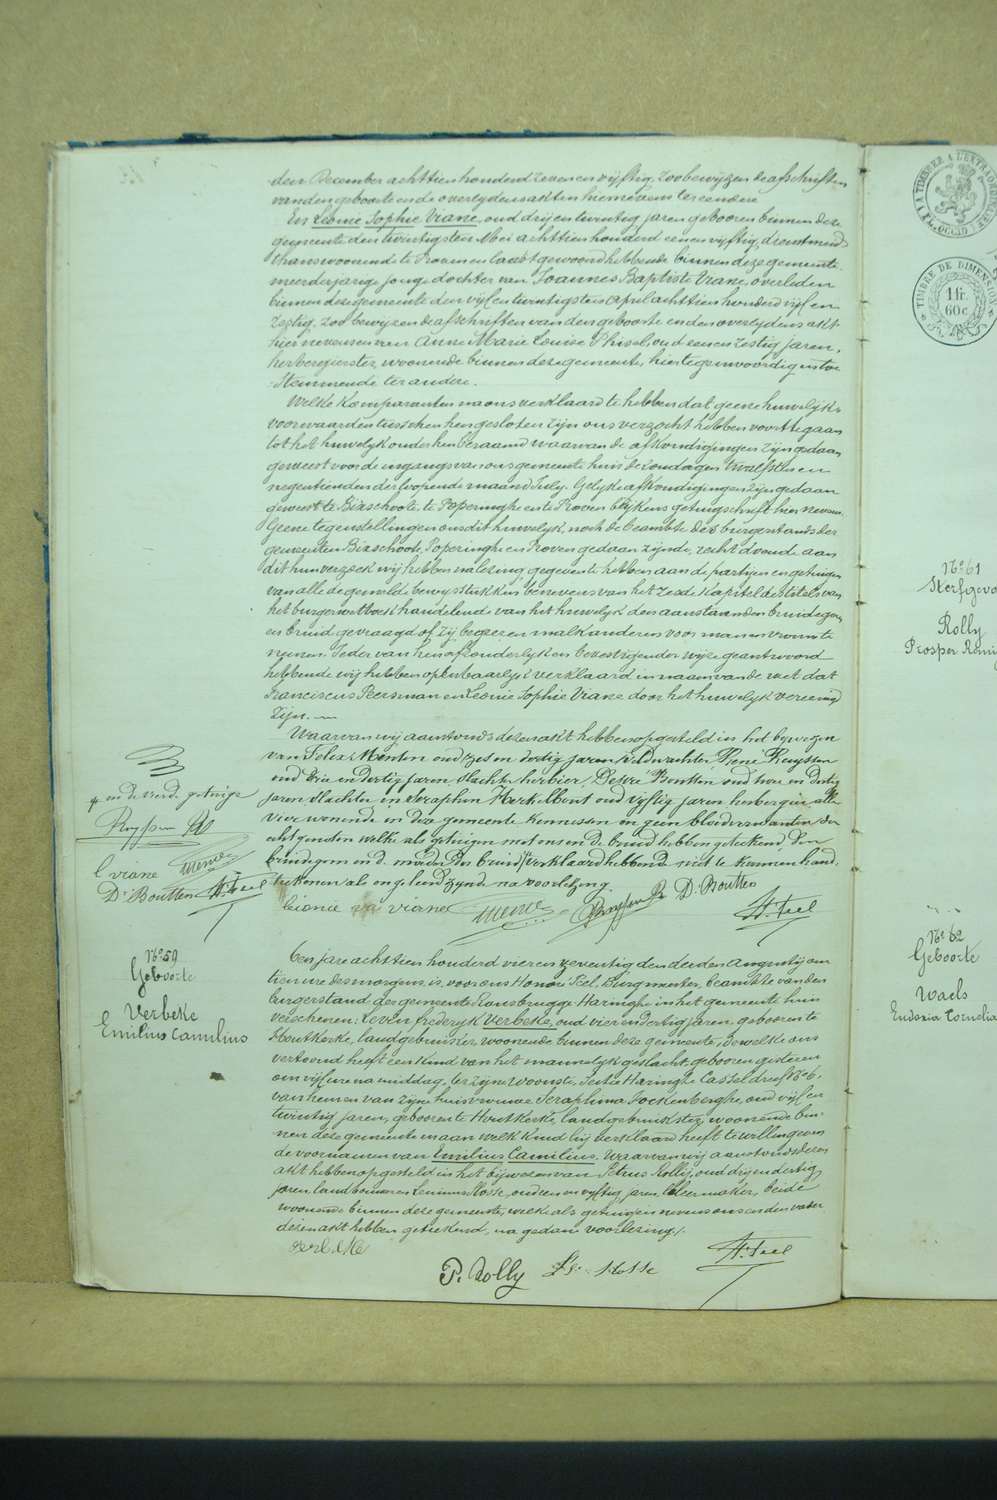 den December achttien honderd zeven en vijftig. Zoo bewijzen de afschriften
van den geboorte en de overlydens akten hiernevens ter eendere
En Leonie Sophie Viane, oud drij en twintig jaren geboren binnen deze
gemeente den twintigsten Mei achttien honderd een en vijftig, dienstmeid
thans woonende te Proven en laatst gewoond hebbende binnen deze gemeente
meerderjarige jonge dochter van Joannes Baptiste Viane, overleden
binnen deze gemeente den vijf en twintigsten April achttien honderd vijf en
zestig. Zoo bewyzen de afschriften van den geboorte en den overlydens akt
hier nevens en van Anne Marie Louise oud een en zestig jaren,
herbergierster, woonende binnen deze gemeente, hier tegenwoordig en toe
stemmende ter andere.
Welke komparanten na ons verklaard te hebben dat geene huwelyks
voorwaarden tusschen hen gesloten zijn ons verzocht hebben voort te gaan
tot het huwelyk onder hen beraamd waarvan de afkondigingen zijn gedaan
geweest voor de ingang van ons gemeente huis de zondagen twaalfsten en
negentienden der loopende maand July. Gelyke afkondigingen zijn gedaan
geweest te Bixschoote, te Poperinghe en te Proven blijkens getuigschrift hier nevens.
Geene tegenstellingen aan dit huwelyk, noch de beambte des burgerstands der
gemeenten Bixschoote, Poperinghe en Proven gedaan zijnde, recht doende aan
dit hun verzoek wij hebben na lezing gegeven te hebben aan de partijen en getuigen
van alle de gemelde bewysstukken benevens van het zesde kapitel des titels van
het burger wetboek handelende van het huwelyk den aanstaanden bruidegom
en bruid gevraagd of zij begeeren malkanderen voor man en vrouw te
nemen. Ieder van hen afzonderlyk en bevestigender wijze geantwoord
hebbende wij hebben openbaarlijk verklaard in naam van de wet dat
Franciscus Beersman en Leonie Sophie Viane door het huwelyk vereenigd
zijn.
Waarvan wij aanstonds dezen akt hebben opgesteld in het bywezen
van Felix Monten oud zes en dertig jaren veldwachter, Rene Ruyssen
oud drie en dertig jaren slachter herbier, Desiré Boutten oud twee en dertig
jaren slachter en Seraphin Herkelbout oud vijftig jaren herbergier alle
vier wonende in deze gemeente kennissen en geen bloedverwanten der
echtgenoten welke als getuigen met ons en de bruid hebben geteekend. Den
bruidegom en de moeder der bruid verklaard hebbende niet te kunnen hand
teekenen als ongeleerd zynde na voorlezing.
Leonie Viane
D. Boutten
H. Feel
en de vierde getuige
Ruyssen
L viane
D. Boutten H. Feel
N° 59
Geboorte
Verbeke
Emilius Camilius
Ten jare achttien honderd vier en zeventig den derden Augusty om
tien ure des morgens is voor ons Honoré Feel, Burgmeester, beambte van den
burgerstand des gemeente Rousbrugge Haringhe in het gemeente huis
verschenen: Leven frederyk Verbeke, oud vier en dertig jaren geboren te
Houtkerke, landgebruiker, woonende binnen deze gemeente, dewelke ons
vertoond heeft een kind van het mannelyk geslacht, geboren gisteren
om vijf ure na middag, ter zijne woonste, Sectie Haringhe Cassel dreef N° 6,
van hem en van zyne huisvrouwe Seraphina Jockenberghe, oud vijf en
twintig jaren, geboren te Houtkerke, landgebruikster, woonende bin-
nen deze gemeente en aan welk kind hij verklaard heeft te willen geven
de voornamen van Emilius Camilius. Waarvan wij aanstonds dezen
akt hebben opgesteld in het bijwezen van Petrus Rolly, oud drij en dertig
jaren landbouwer en oud een en vijftig jaren kleermaker, beide
woonende binnen deze gemeente, welke als getuigen nevens ons en den vader
dezen akt hebben geteekend, na gedane voorlezing.
Verbeke
P. Rolly
H. Feel
TIMBRE A L'EXTRAORDINAIRE
FL. OCCID
TIMBRE DE DIMENSION
1 fr.
60 c
N° 61
Sterfgeva
Rolly
Prosper Remi
N° 62
Geboorte
Waels
Eudoxia Cornelia